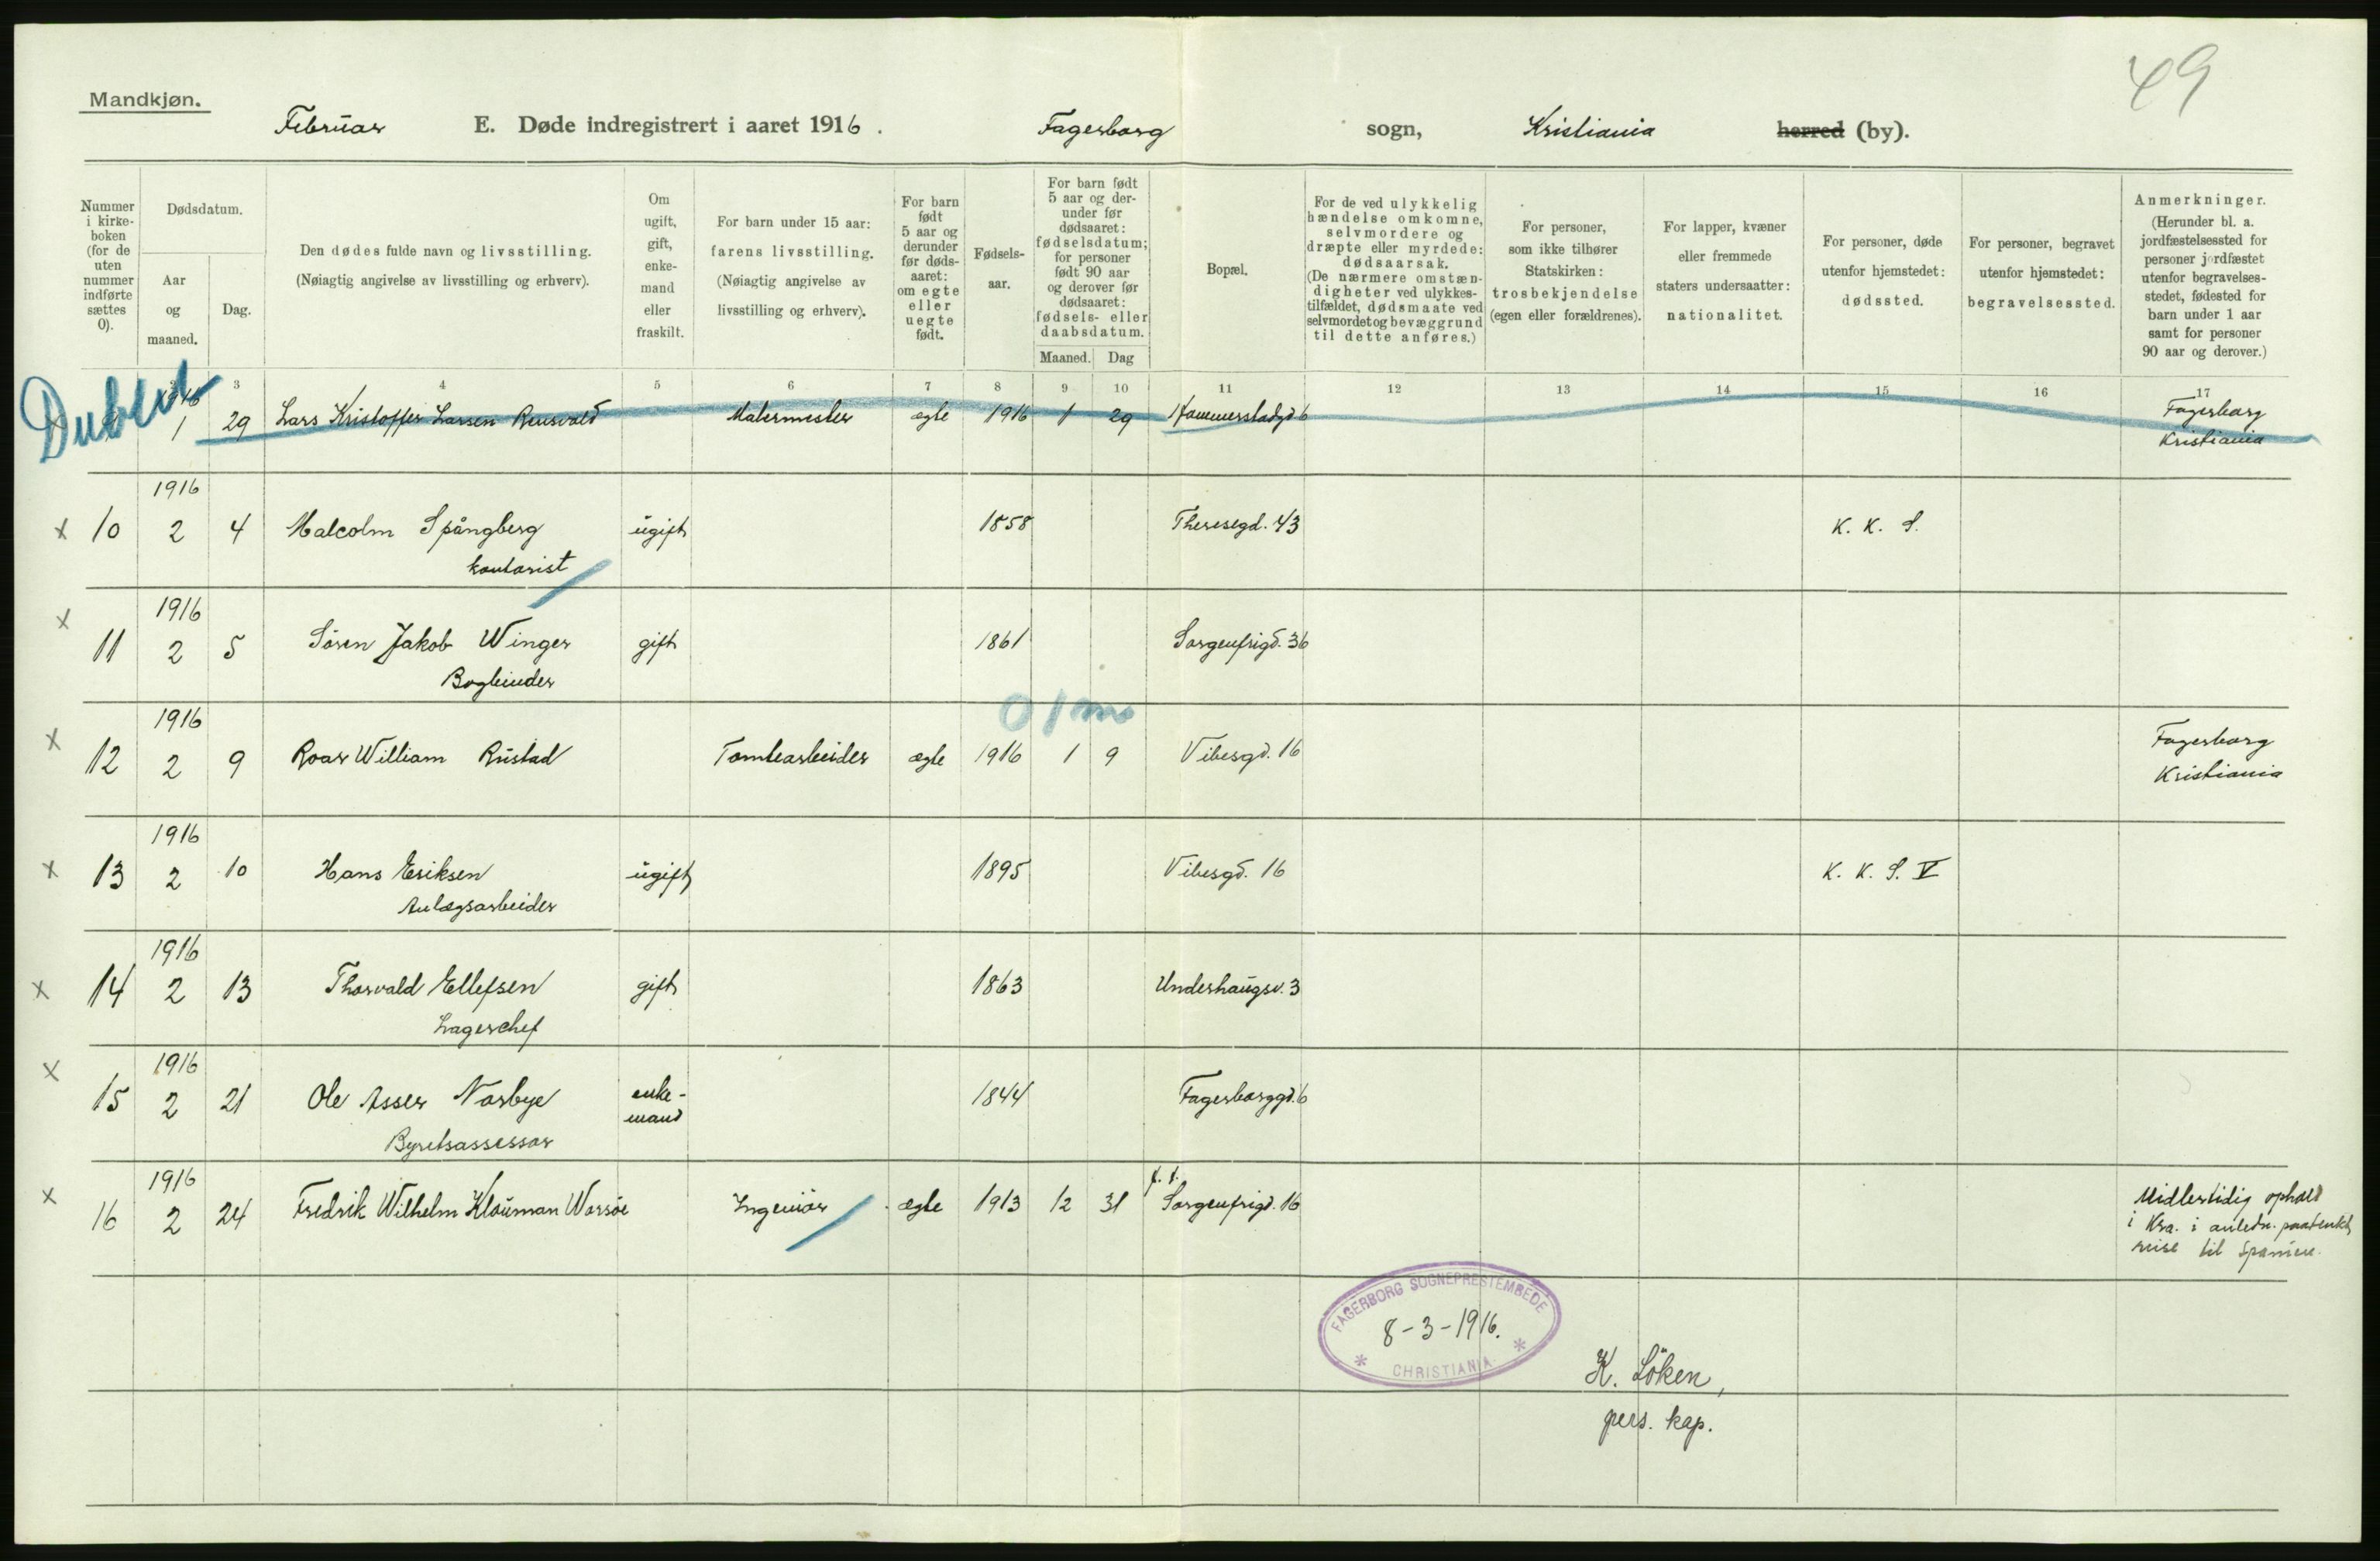 49
Mandkjøn.
Februar E. Døde indregistrert i aaret 1916. Fagerborg sogn, Kristiania herred (by).
Nummer i kirkeboken (for de uten nummer indførte sættes 0).
Dødsdatum.
Aar og maaned.
Dag.
Den dødes fulde navn og livsstilling.
(Nøiagtig angivelse av livsstilling og erhverv).
Om ugift, gift, enkemand eller fraskilt.
For barn under 15 aar: farens livsstilling.
(Nøiagtig angivelse av livsstilling og erhverv).
For barn født 5 aar og derunder før dødsaaret: om egte eller uegte født.
Fødselsaar.
For barn født 5 aar og derunder før dødsaaret: fødselsdatum; for personer født 90 aar og derover før dødsaaret: fødsels- eller daabsdatum.
Maaned. Dag
Bopæl.
For de ved ulykkelig hændelse omkomne, selvmordere og dræpte eller myrdede: dødsaarsak.
(De nærmere omstændigheter ved ulykkestilfældet, dødsmaate ved selvmordet og bevæggrund til dette anføres.)
For personer, som ikke tilhører Statskirken: trosbekjendelse (egen eller forældrenes).
For lapper, kvæner eller fremmede staters undersaatter: nationalitet.
For personer, døde utenfor hjemstedet: dødssted.
For personer, begravet utenfor hjemstedet: begravelsessted.
Anmerkninger.
(Herunder bl. a. jordfæstelsessted for personer jordfæstet utenfor begravelsesstedet, fødested for barn under 1 aar samt for personer 90 aar og derover.)
3 4 5 6 7 8 9 10 11 12 13 14 15 16 17
1 29 Lars Kristoffer Larsen Malermester egte 1916 1 29 Hammerstadgd 6 Fagerborg
Kristiania
1916
x 10 2 4 Malcolm Spångberg ugift 1858 Theresegd. 43 K. K. S.
kontorist
1916
x 11 2 5 Sören Jakob Winger gift 1861 Sorgenfrigd. 36
Bogbinder
0 1 m
1916
x 12 2 9 Roar William Rustad Tomtearbeider egte 1916 1 9 Vibesgd. 16 Fagerborg
Kristiania
1916
x 13 2 10 Hans Eriksen ugift 1895 Vibesgd. 16 K. K. S. V
Anlægsarbeider
1916
x 14 2 13 Thorvald Ellefsen gift 1863 Underhaugsv. 3
Lagerchef
1916
x 15 2 21 Ole Asser Norbye enke-
mand 1844 Fagerborggd. 6
Byretsassessor
1916
x 16 2 24 Fredrik Wilhelm Klouman Worsöe Ingeniör egte 1913 12 31 f. t. Sorgenfrigd. 16 Midlertidig ophold
i Kra. i anledn. paatenkt
reise til Spanien.
FAGERBORG SOGNEPRESTEMBEDE
8-3-1916.
* CHRISTIANIA *
K. Löken,
pers. kap.